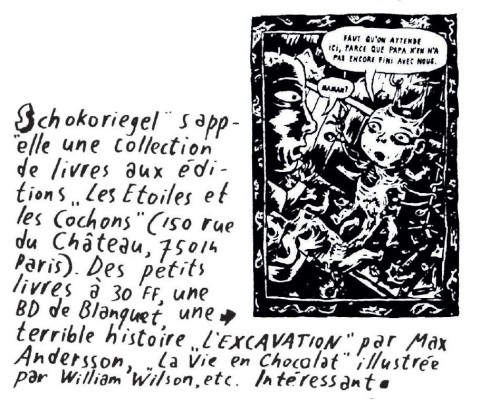 FAUT QU'ON ATTENDE
ICI, PARCE QUE PAPA N'EN N'A
PAS ENCORE FINI AVEC NOUS.
MAMAN?
Schokoriegel" s'app-
elle une collection
de livres aux édi-
tions „Les Etoiles et
les Cochons" (150 rue
du Château, 75014
Paris). Des petits
livres à 30 FF, une
BD de Blanquet, une
terrible histoire „L'EXCAVATION" par Max
Andersson, „La Vie en Chocolat" illustrée
par William Wilson, etc. Intéressant.